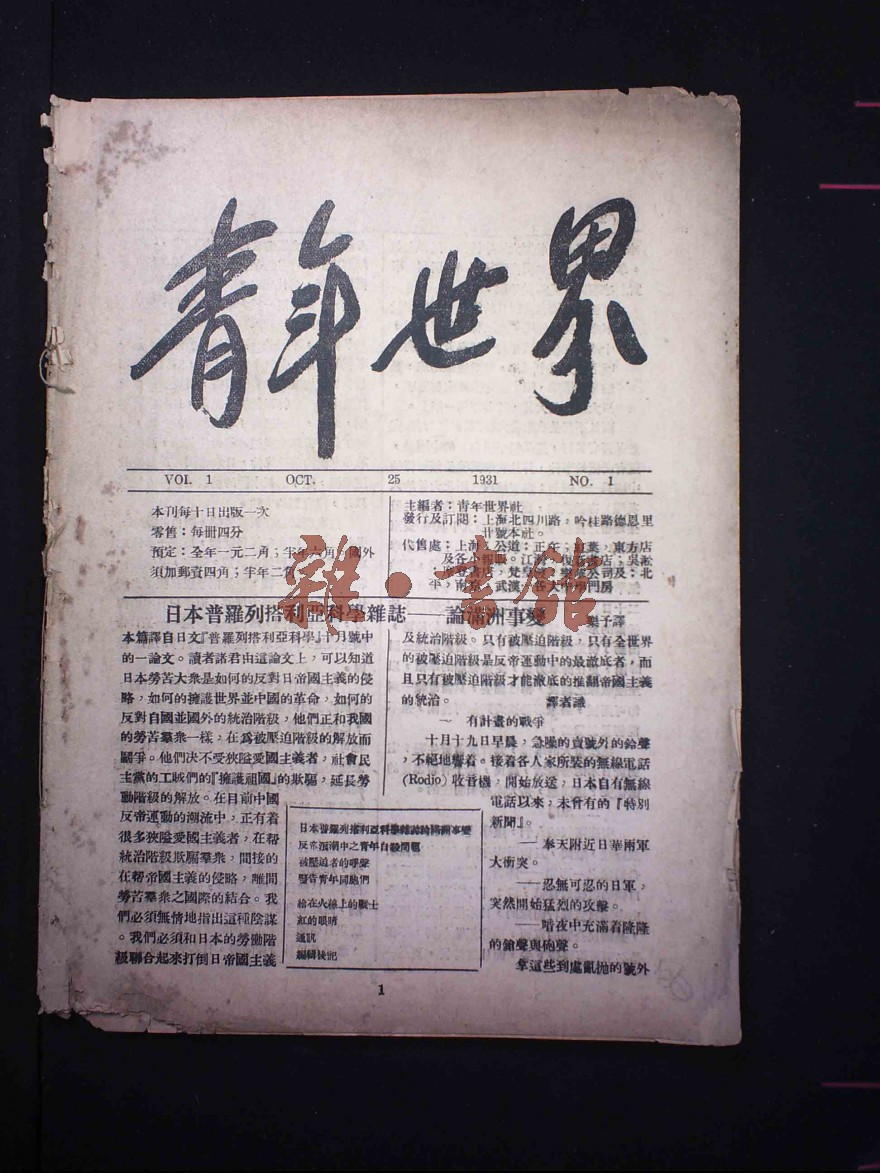 青年世界
VOL. 1 OCT. 25 1931 NO. 1
本刊每十日出版一次
零售：每册四分
預定：全年一元二角；半年六角。國外
須加郵資四角；半年二角
主編者：青年世界社
發行及訂閱：上海北四川路，吟桂路德恩里
廿號本社。
代售處：上海：公道；正午；紅葉，東方店
及各小報販。江灣：復旦書店，吳淞
平，南京，武漢，各大中學門房
雜·書館
日本普羅列搭利亞科學雜誌——論滿洲事變
樂予譯
本篇譯自日文『普羅列搭利亞科學』十月號中
的一論文。讀者諸君由這論文上，可以知道
日本勞苦大衆是如何的反對日帝國主義的侵
略，如何的擁護世界並中國的革命，如何的
反對自國並國外的統治階級，他們正和我國
的勞苦羣衆一樣，在爲被壓迫階級的解放而
鬭爭。他們決不受狹隘愛國主義者，社會民
主黨的工賊們的『擁護祖國』的欺騙，延長勞
動階級的解放。在目前中國
反帝運動的潮流中，正有着
很多狹隘愛國主義者，在帮
統治階級欺騙羣衆，間接的
在帮帝國主義的侵略，離間
勞苦羣衆之國際的結合。我
們必須無情地指出這種陰謀
。我們必須和日本的勞働階
級聯合起來打倒日帝國主義
及統治階級。只有被壓迫階級，只有全世界
的被壓迫階級是反帝運動中的最澈底者，而
且只有被壓迫階級才能澈底的推翻帝國主義
的統治。 譯者識
一 有計畫的戰爭
十月十九日早晨，急噪的賣號外的鈴聲
，不絕地響着。接着各人家所裝的無線電話
(Rodio) 收音機，開始放送，日本自有無線
電話以來，未曾有的『特別
新聞』。
——奉天附近日華兩軍
大衝突。
——忍無可忍的日軍，
突然開始猛烈的攻擊。
——暗夜中充滿着隆隆
的鎗聲與砲聲。
拿這些到處亂抛的號外
日本普羅列搭利亞科學雜誌論滿洲事變
反帝浪潮中之青年自殺問題
被壓迫者的呼聲
警告青年同胞們
給在火線上的戰士
紅的眼睛
通訊
編輯後記
1